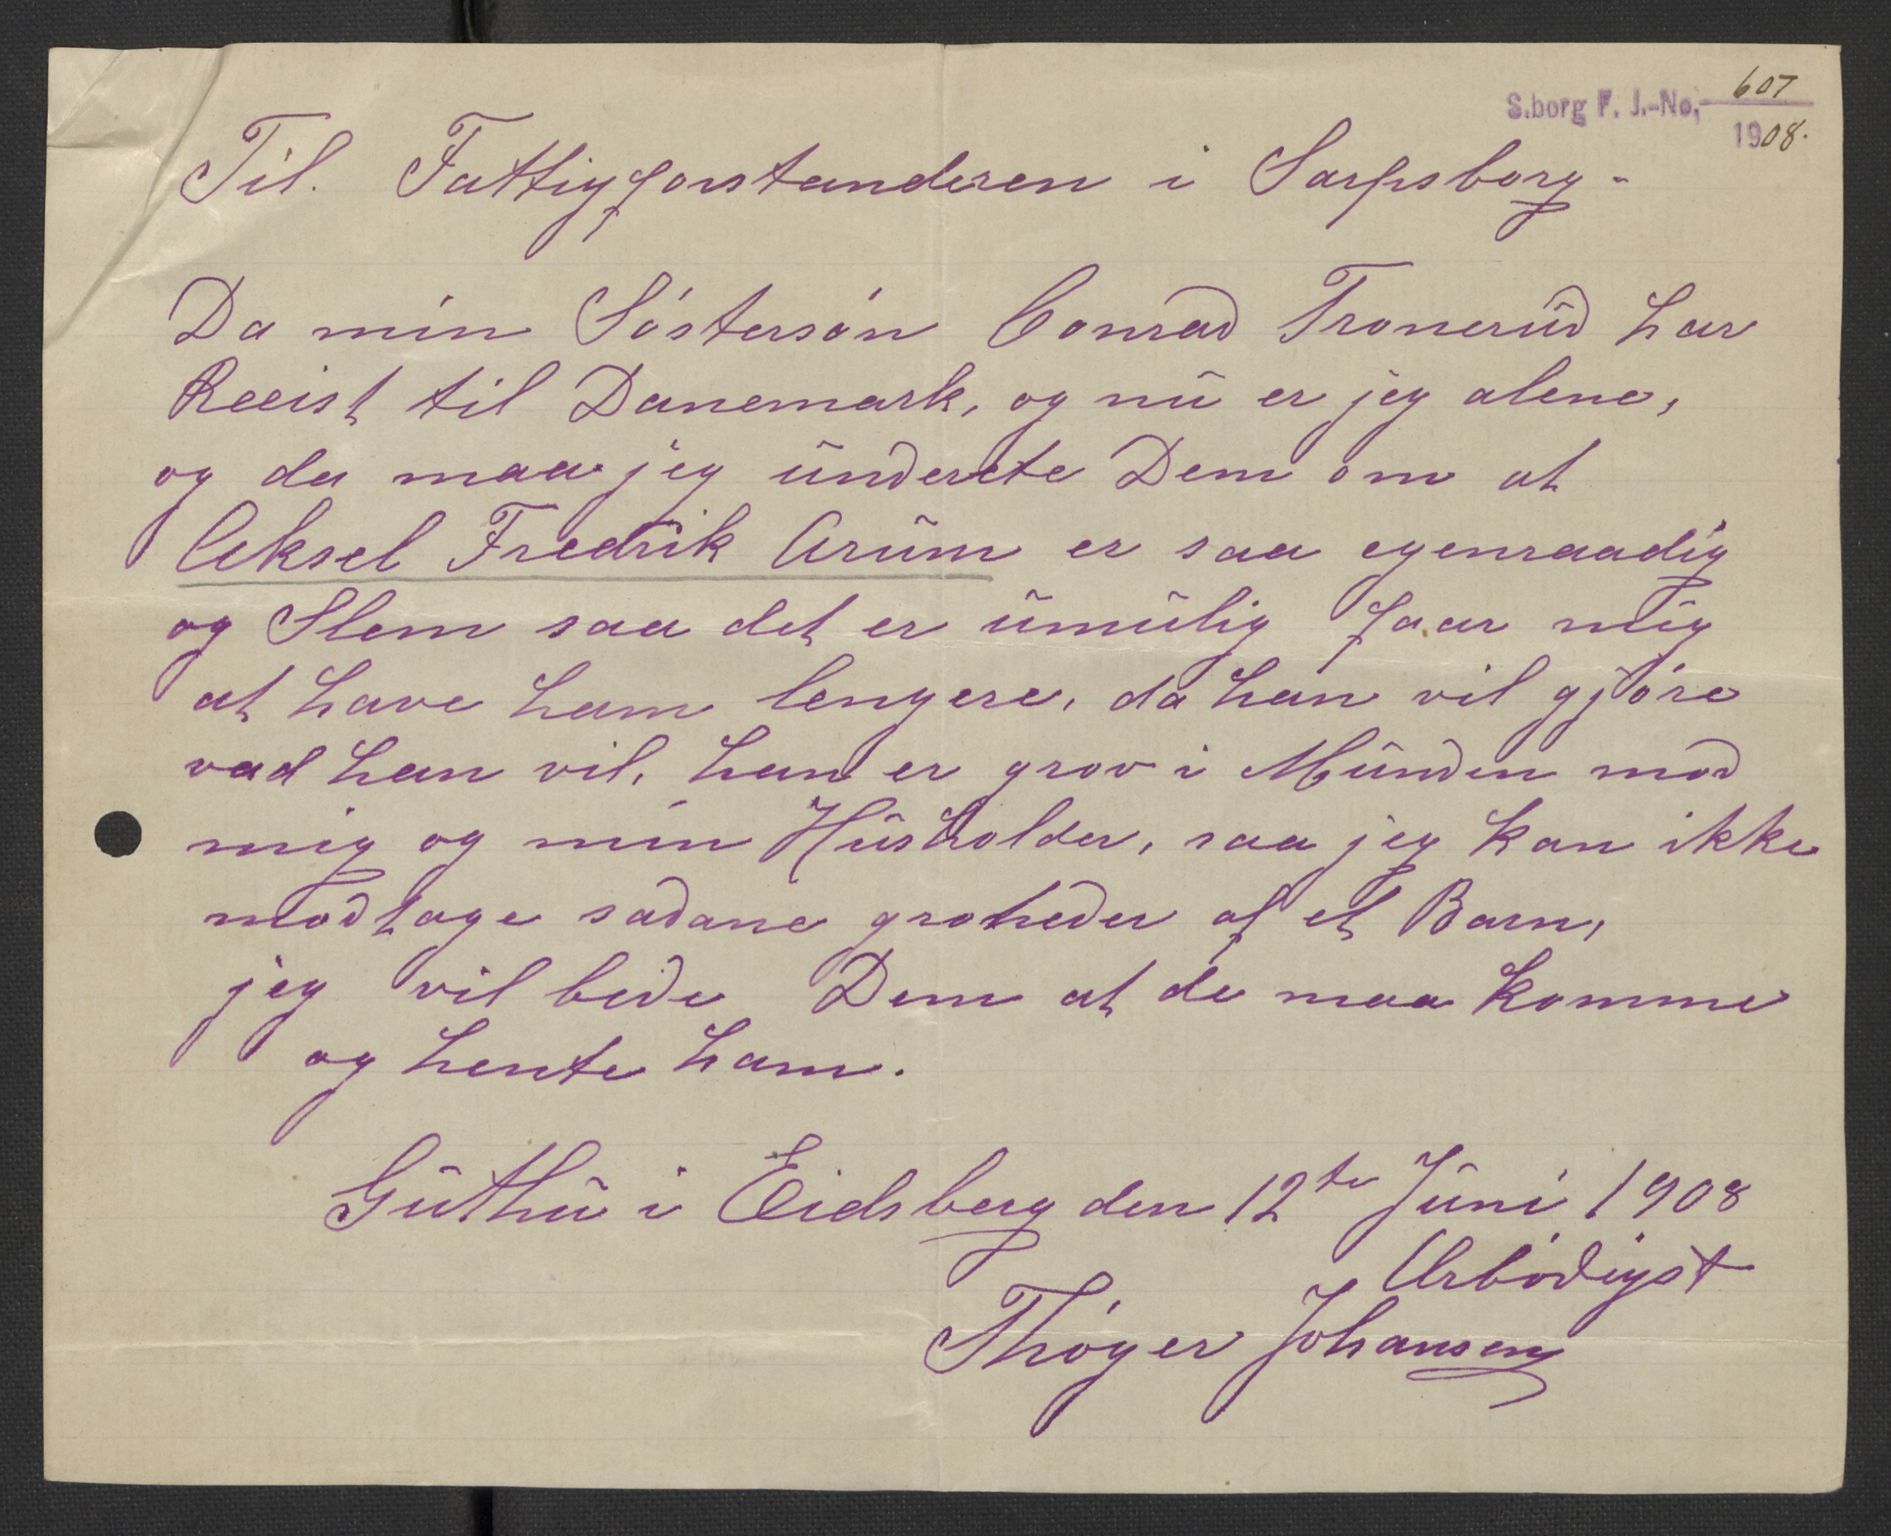 S.borg F. J.-No, 607
1908.
Til. Fattigforstanderen i Sarpsborg.
Da min Söstersön Conrad Tronerud har
Reeist til Danemark, og nu er jeg alene,
og da maa jeg underete Dem om at
Aksel Fredrik Arum er saa egenraadig
og Slem saa det er umulig faar mig
at have ham lengere, da han vil gjöre
vad han vil, han er grov i Munden mod
mig og min Husholder, saa jeg kan ikke
modtage sadane groheder af et Barn,
jeg vil bede Dem at de maa komme
og hente ham.
Guthu i Eidsberg den 12te Juni 1908
Ærbödigst
Thöger Johansen